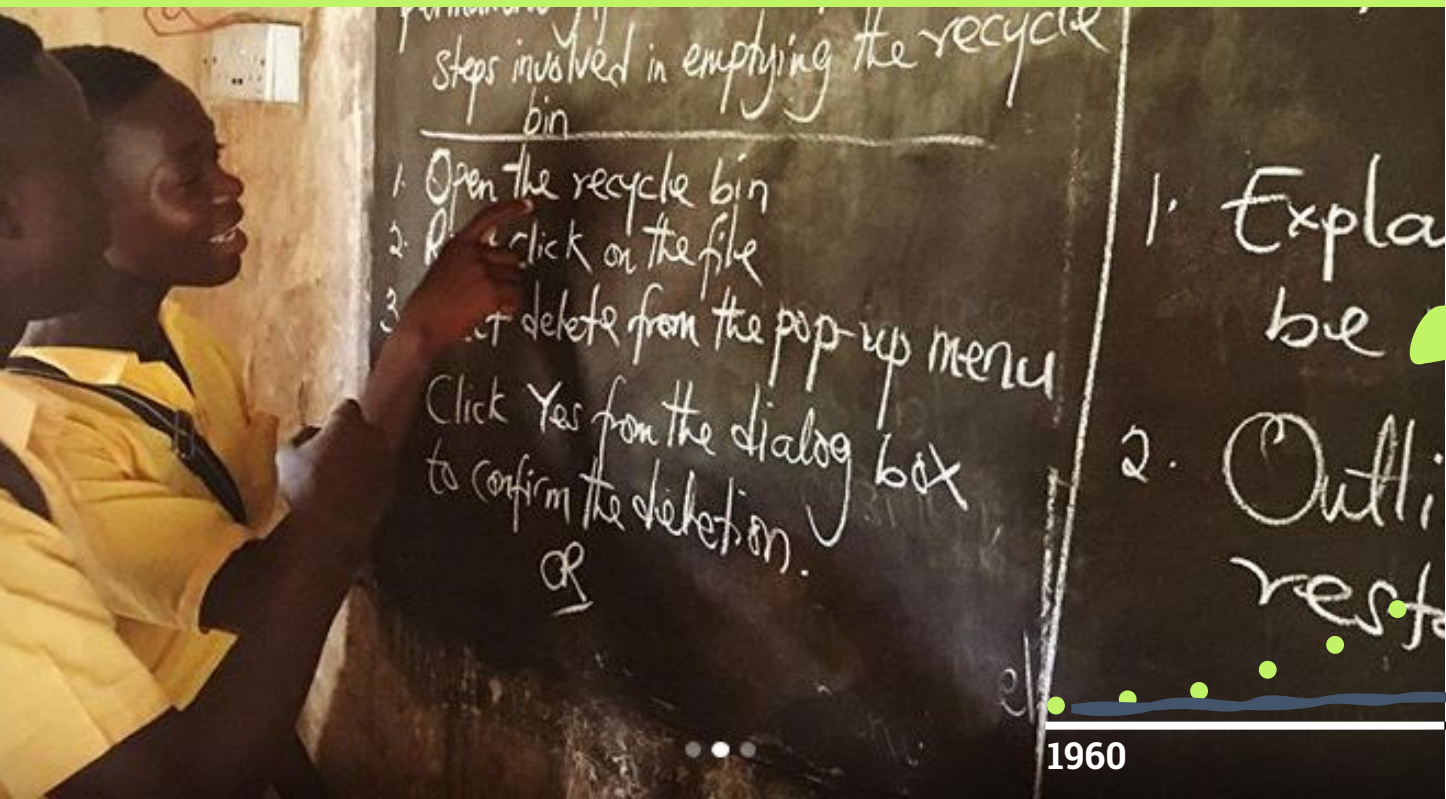 steps involved in emptying the recycle
bin
1. Open the recycle bin
2. click on the file
3 delete from the pop-up menu
Click Yes from the dialog box
to confirm the deletion.
OR
1. Expla
be
2. Outli
rest
1960